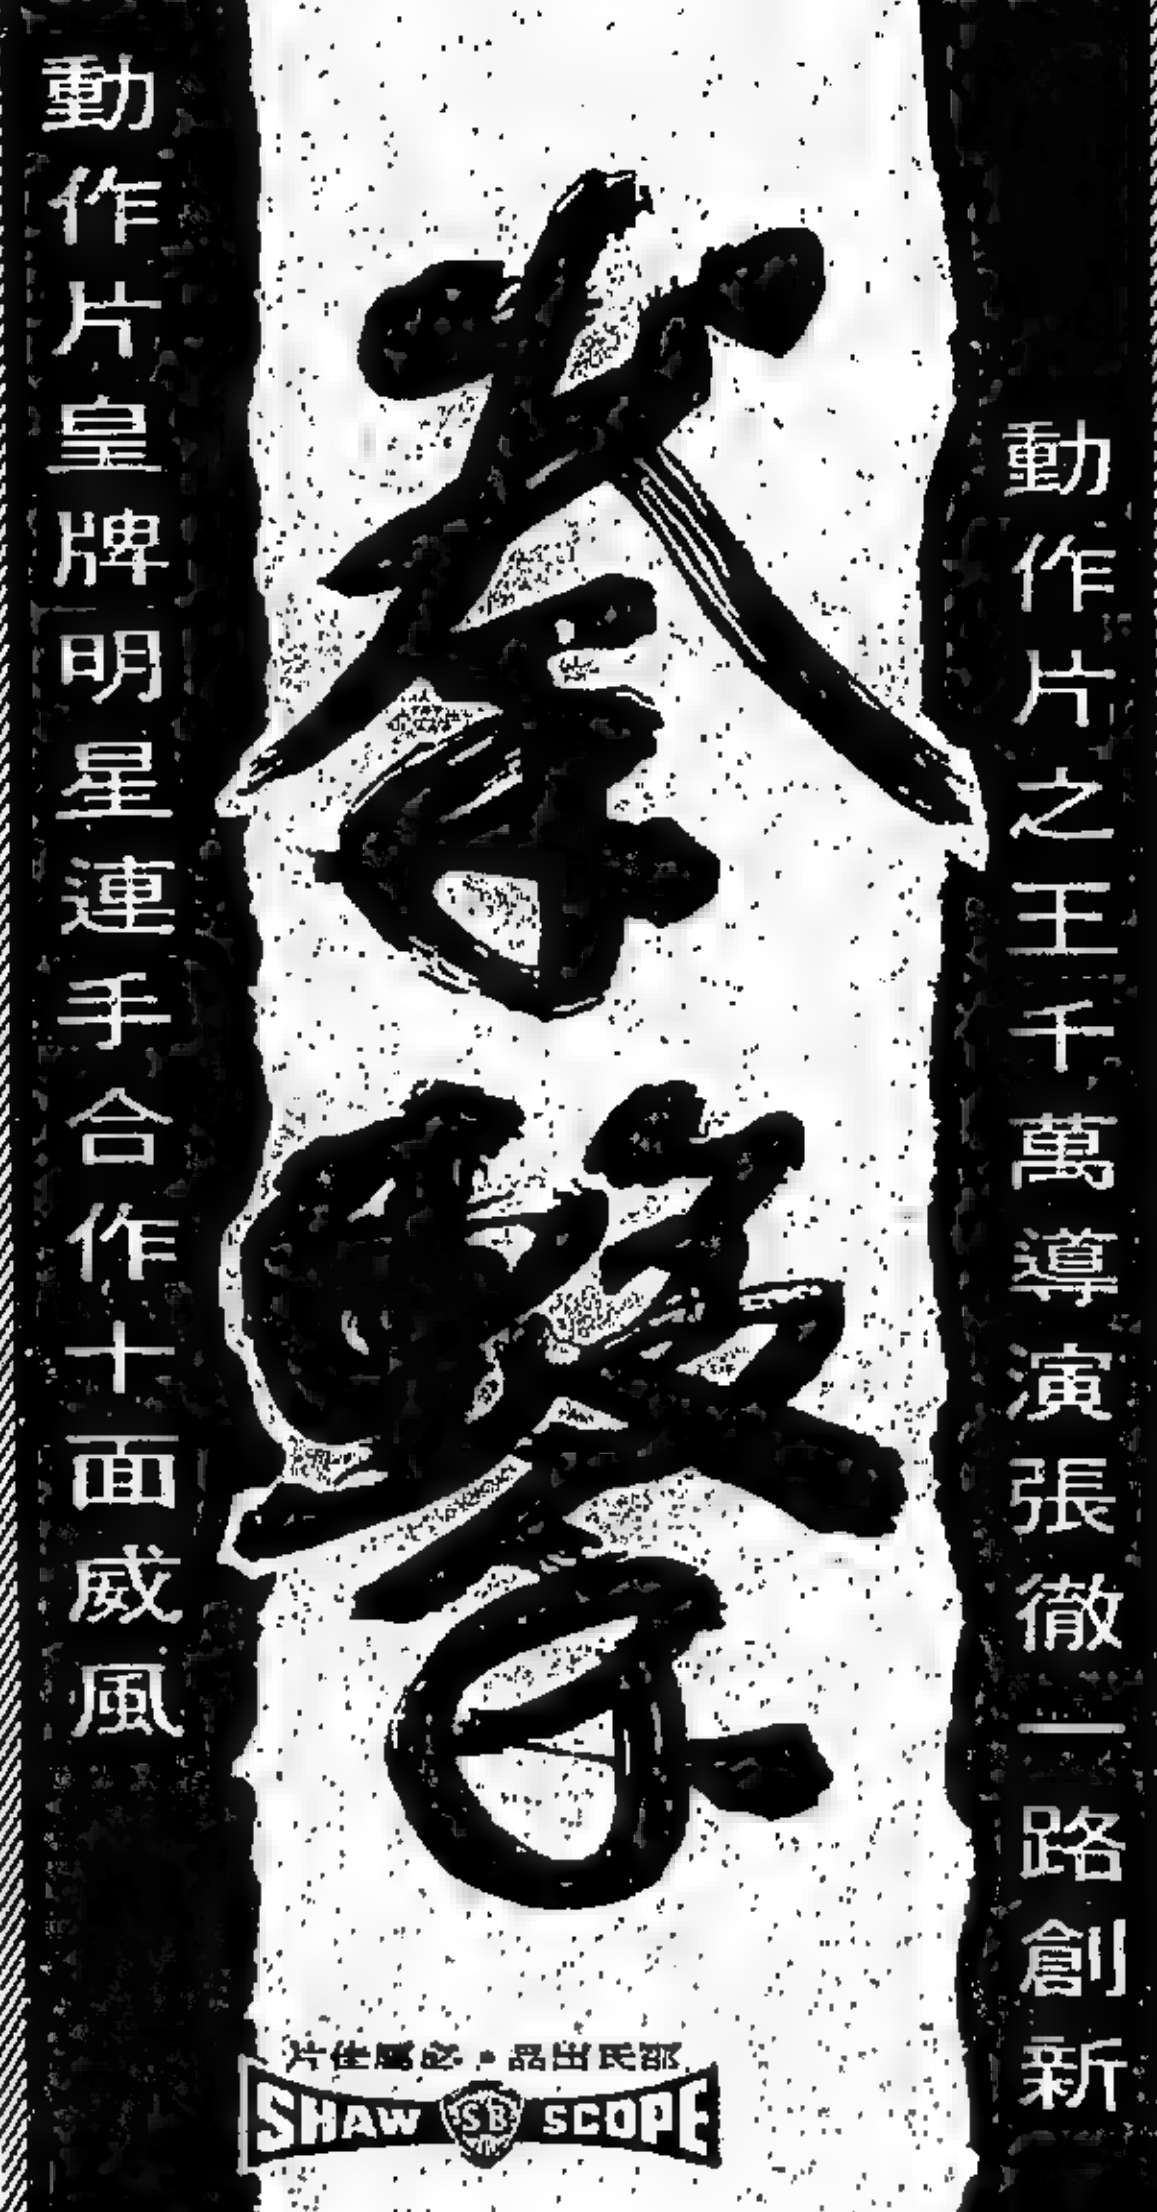 動作片之王千萬導演張徹一路創新
拳擊
動作片皇牌明星連手合作十面威風
邵氏出品・必屬佳片
SHAW SB SCOPE